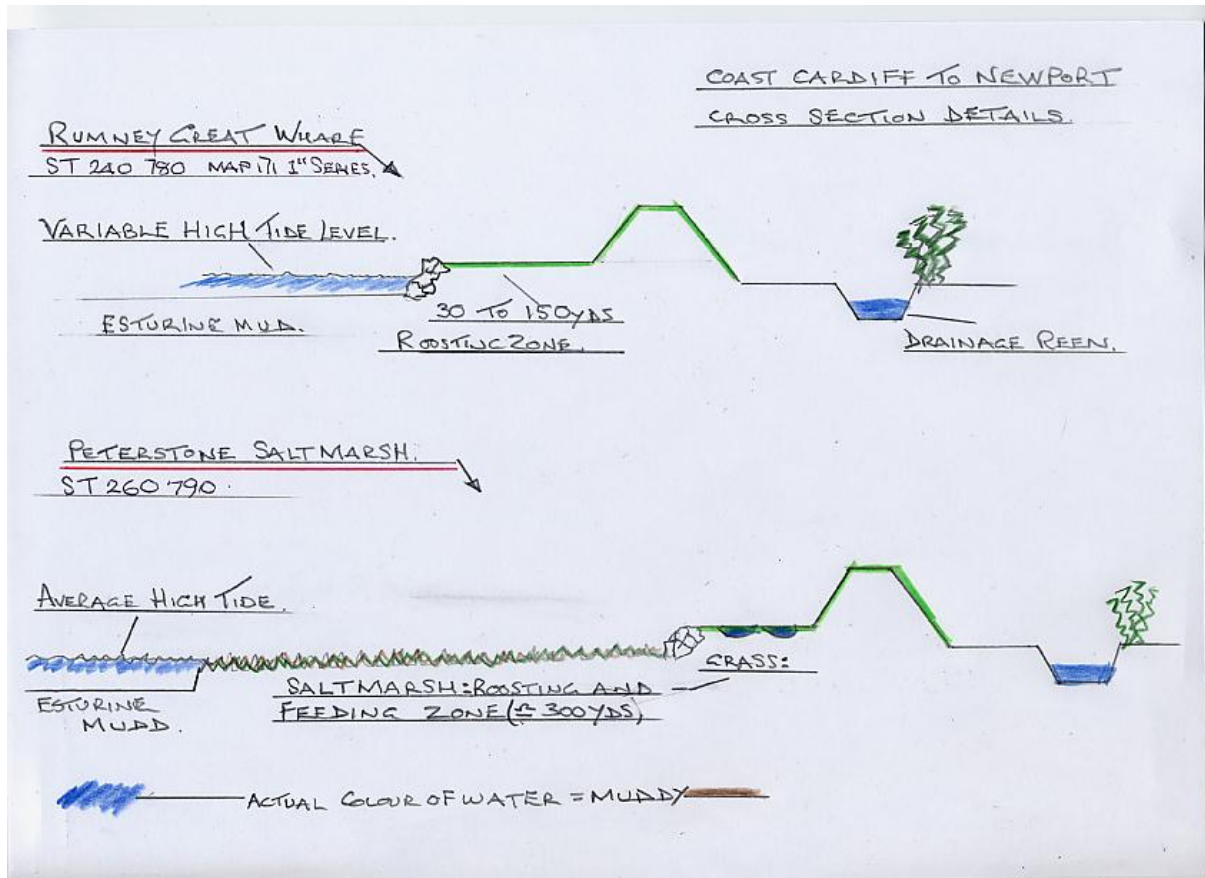 COAST CARDIFF TO NEWPORT
CROSS SECTION DETAILS.
RUMNEY GREAT WHARF
ST 240 780 MAP 171 1" SERIES.
VARIABLE HIGH TIDE LEVEL.
ESTURINE MUD.
30 TO 150YDS
ROOSTING ZONE.
DRAINAGE REEN.
PETERSTONE SALTMARSH.
ST 260 790.
AVERAGE HIGH TIDE.
ESTURINE
MUDD.
GRASS:
SALTMARSH: ROOSTING AND
FEEDING ZONE (≏ 300 YDS)
ACTUAL COLOUR OF WATER = MUDDY